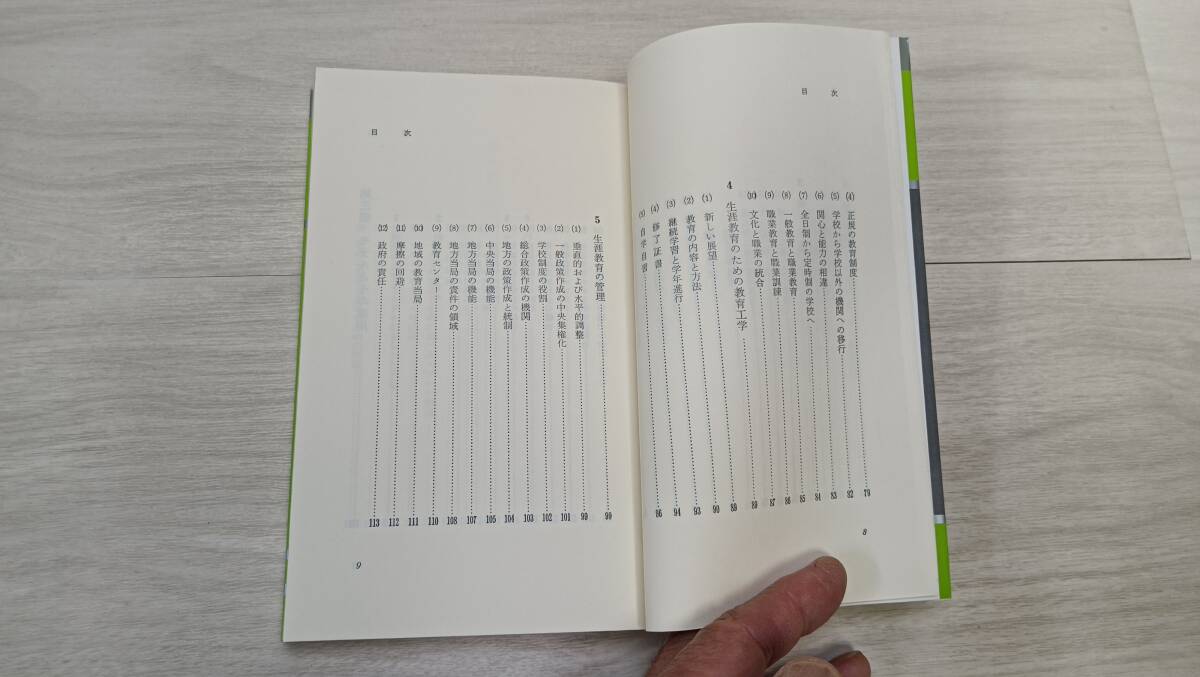 目 次
⑷ 正規の教育制度……79
⑸ 学校から学校以外の機関への移行……82
⑹ 関心と能力の相違……83
⑺ 全日制から定時制の学校へ……84
⑻ 一般教育と職業教育……85
⑼ 職業教育と職業訓練……86
⑽ 文化と職業の統合……87
4 生涯教育のための教育工学……89
⑴ 新しい展望……89
⑵ 教育の内容と方法……90
⑶ 継続学習と学年進行……93
⑷ 修了証書……94
⑸ 自学自習……96
8
目 次
5 生涯教育の管理……99
⑴ 垂直的および水平的調整……99
⑵ 一般政策作成の中央集権化……101
⑶ 学校制度の役割……102
⑷ 総合政策作成の機関……103
⑸ 地方の政策作成と統制……104
⑹ 中央当局の機能……105
⑺ 地方当局の機能……107
⑻ 地方当局の責任の領域……108
⑼ 教育センター……110
⑽ 地域の教育当局……111
⑾ 摩擦の回避……112
⑿ 政府の責任……113
9